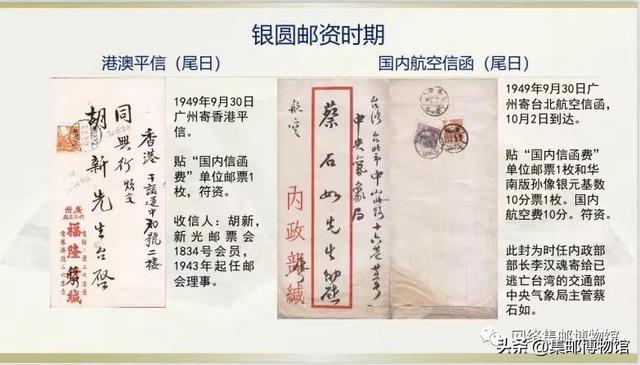 银圆邮资时期
港澳平信（尾日）
国内航空信函（尾日）
1949年9月30日
广州寄香港平
信。
贴“国内信函
费”单位邮票1
枚，符资。
收信人：胡新，
新光邮票会
1834号会员，
1943年起任邮
会理事。
香港干諾道中
號二樓
同興行
胡新先生台啓
福隆
緘
航空
台灣台北市中山路十六巷
中央氣象局
蔡石如先生
內政部緘
1949年9月30日广
州寄台北航空信函，
10月2日到达。
贴“国内信函费”
单位邮票1枚和华
南版孙像银元基数
10分票1枚。国内
航空费10分。符资。
此封为时任内政部
部长李汉魂寄给已
逃亡台湾的交通部
中央气象局主管蔡
石如。
网络集邮博物馆
头条@集邮博物馆